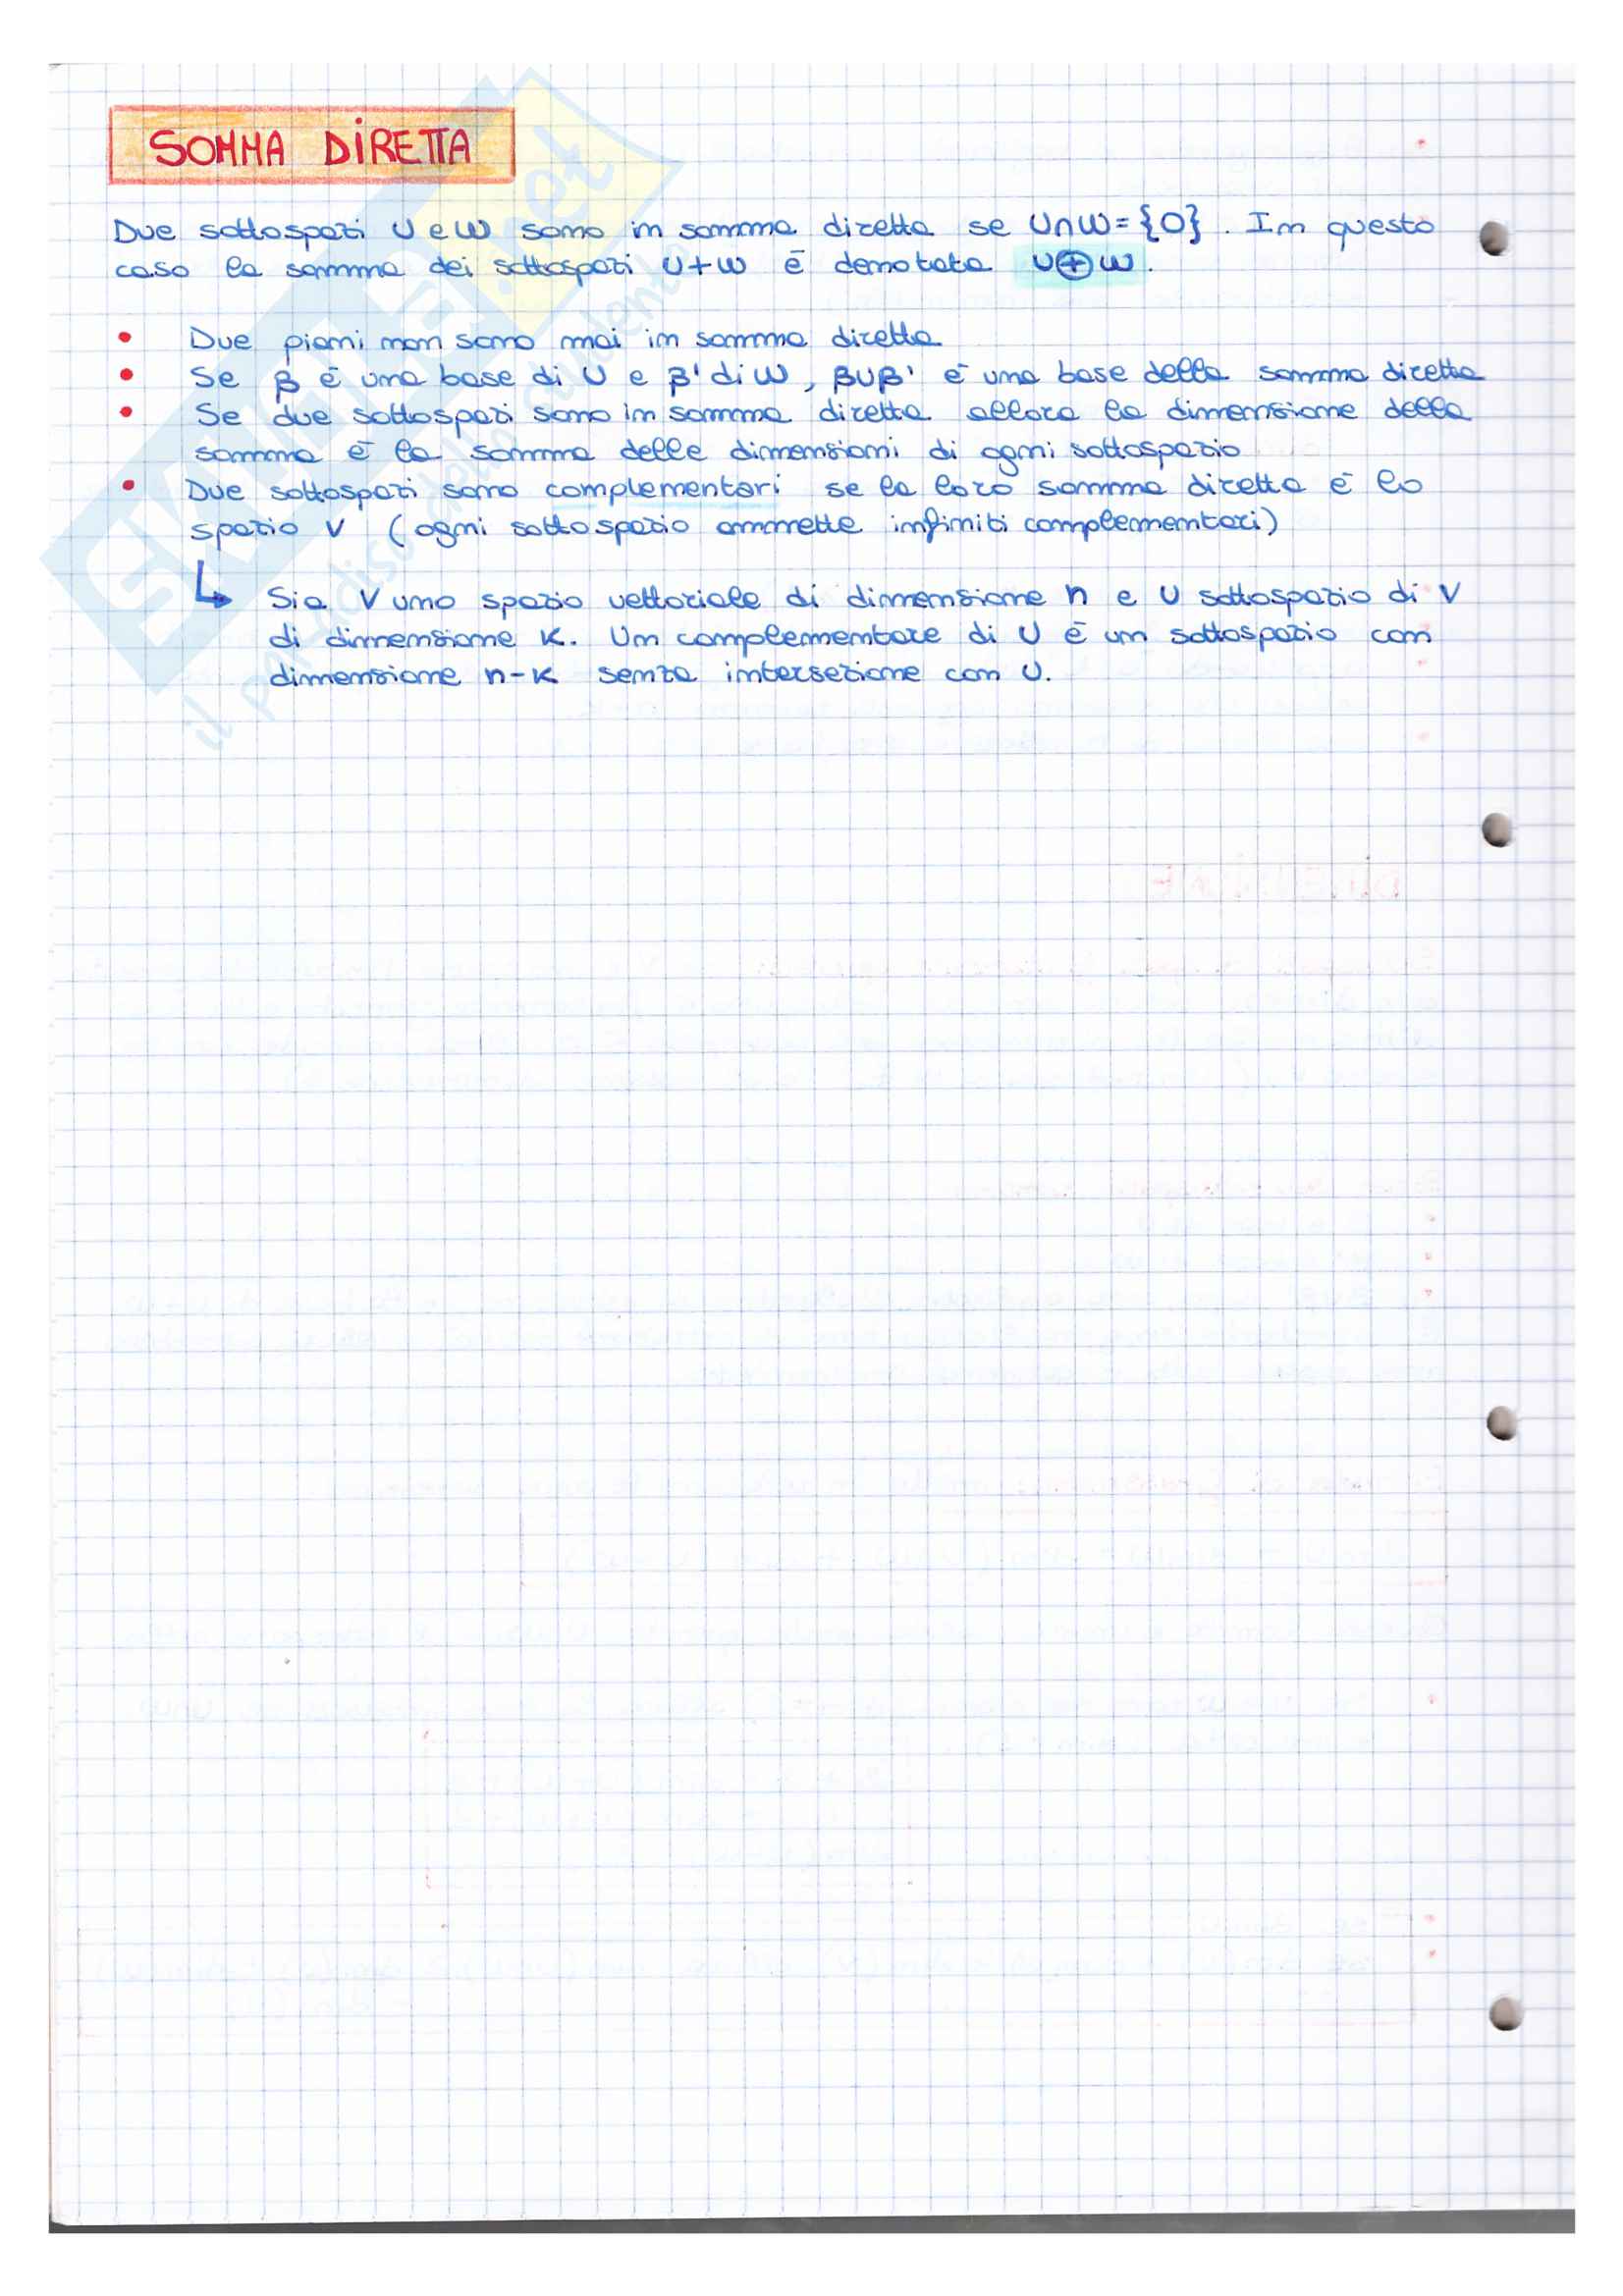 SOMMA DIRETTA
Due sottospazi U e W sono in somma diretta se U∩W={0}. In questo
caso la somma dei sottospazi U+W è denotata U⊕W.
• Due piani non sono mai in somma diretta
• Se β è una base di U e β' di W, β∪β' è una base della somma diretta
• Se due sottospazi sono in somma diretta allora la dimensione della
somma è la somma delle dimensioni di ogni sottospazio
• Due sottospazi sono complementari se la loro somma diretta è lo
spazio V (ogni sottospazio ammette infiniti complementari)
↳ Sia V uno spazio vettoriale di dimensione n e U sottospazio di V
di dimensione K. Un complementare di U è un sottospazio con
dimensione n-K senza intersezione con U.
SKUOLA.net
il paradiso dello studente